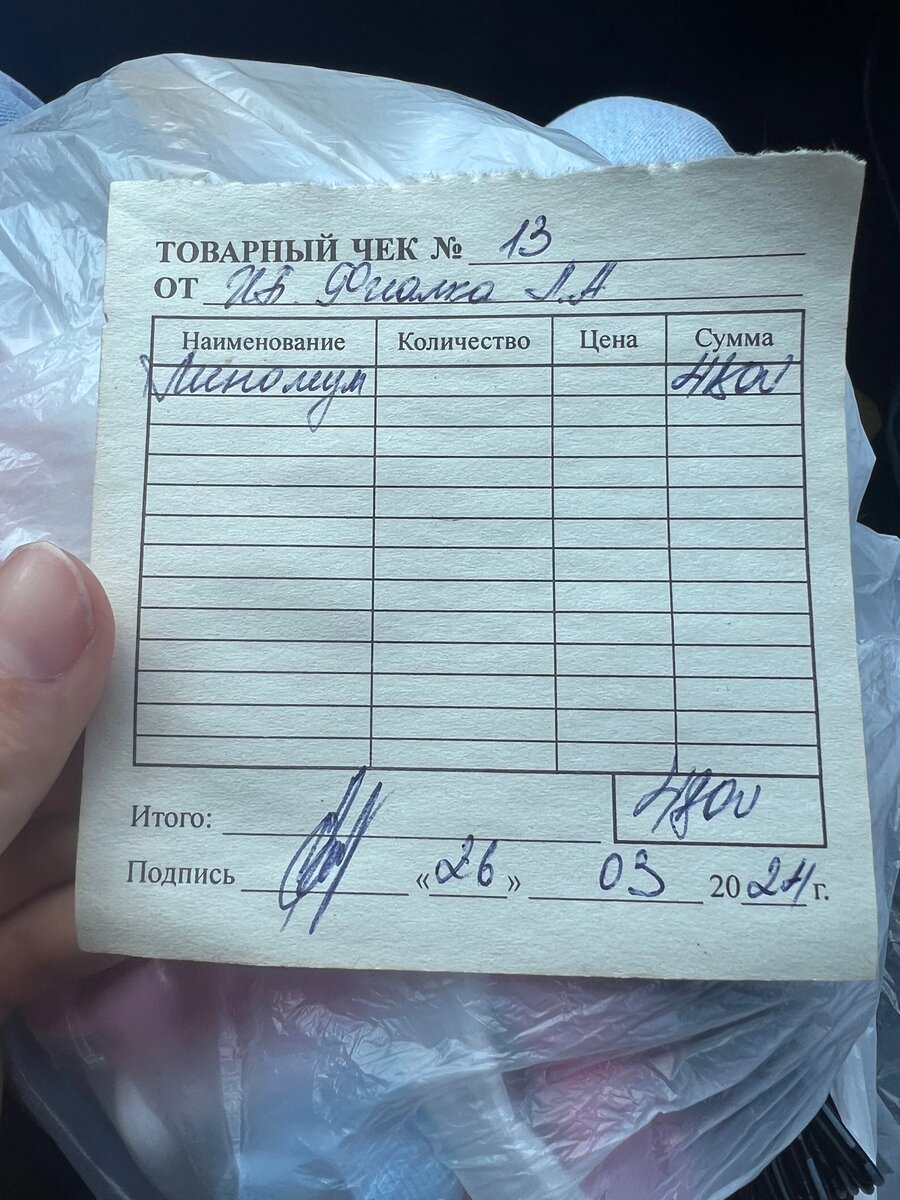 ТОВАРНЫЙ ЧЕК № 13
ОТ Фиалка Л.А
Наименование Количество Цена Сумма
4800
Итого: 4800
Подпись «26» 03 2024 г.